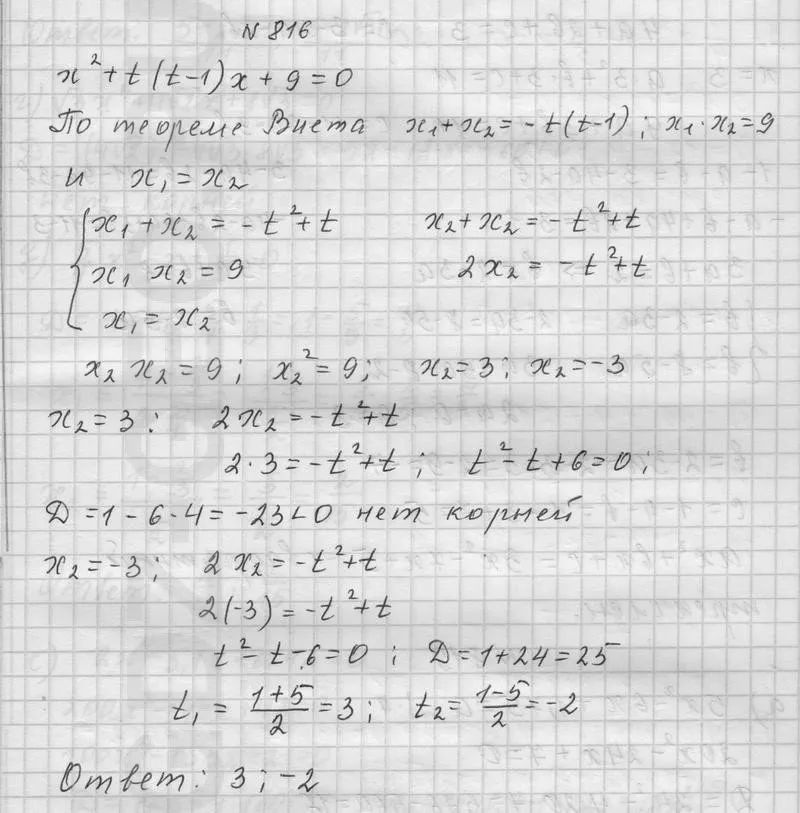 N 816
x² + t(t-1)x + 9 = 0
По теореме Виета x₁+x₂ = -t(t-1); x₁·x₂ = 9
и x₁ = x₂
x₁ + x₂ = -t² + t x₂+x₂ = -t²+t
x₁ x₂ = 9 2x₂ = -t²+t
x₁ = x₂
x₂ x₂ = 9; x₂² = 9; x₂ = 3; x₂ = -3
x₂ = 3: 2x₂ = -t²+t
2·3 = -t²+t; t²-t+6=0;
Д = 1 - 6·4 = -23 < 0 нет корней
x₂ = -3; 2x₂ = -t²+t
2(-3) = -t²+t
t²-t-6=0; Д = 1+24 = 25
t₁ = (1+5)/2 = 3; t₂ = (1-5)/2 = -2
Ответ: 3; -2